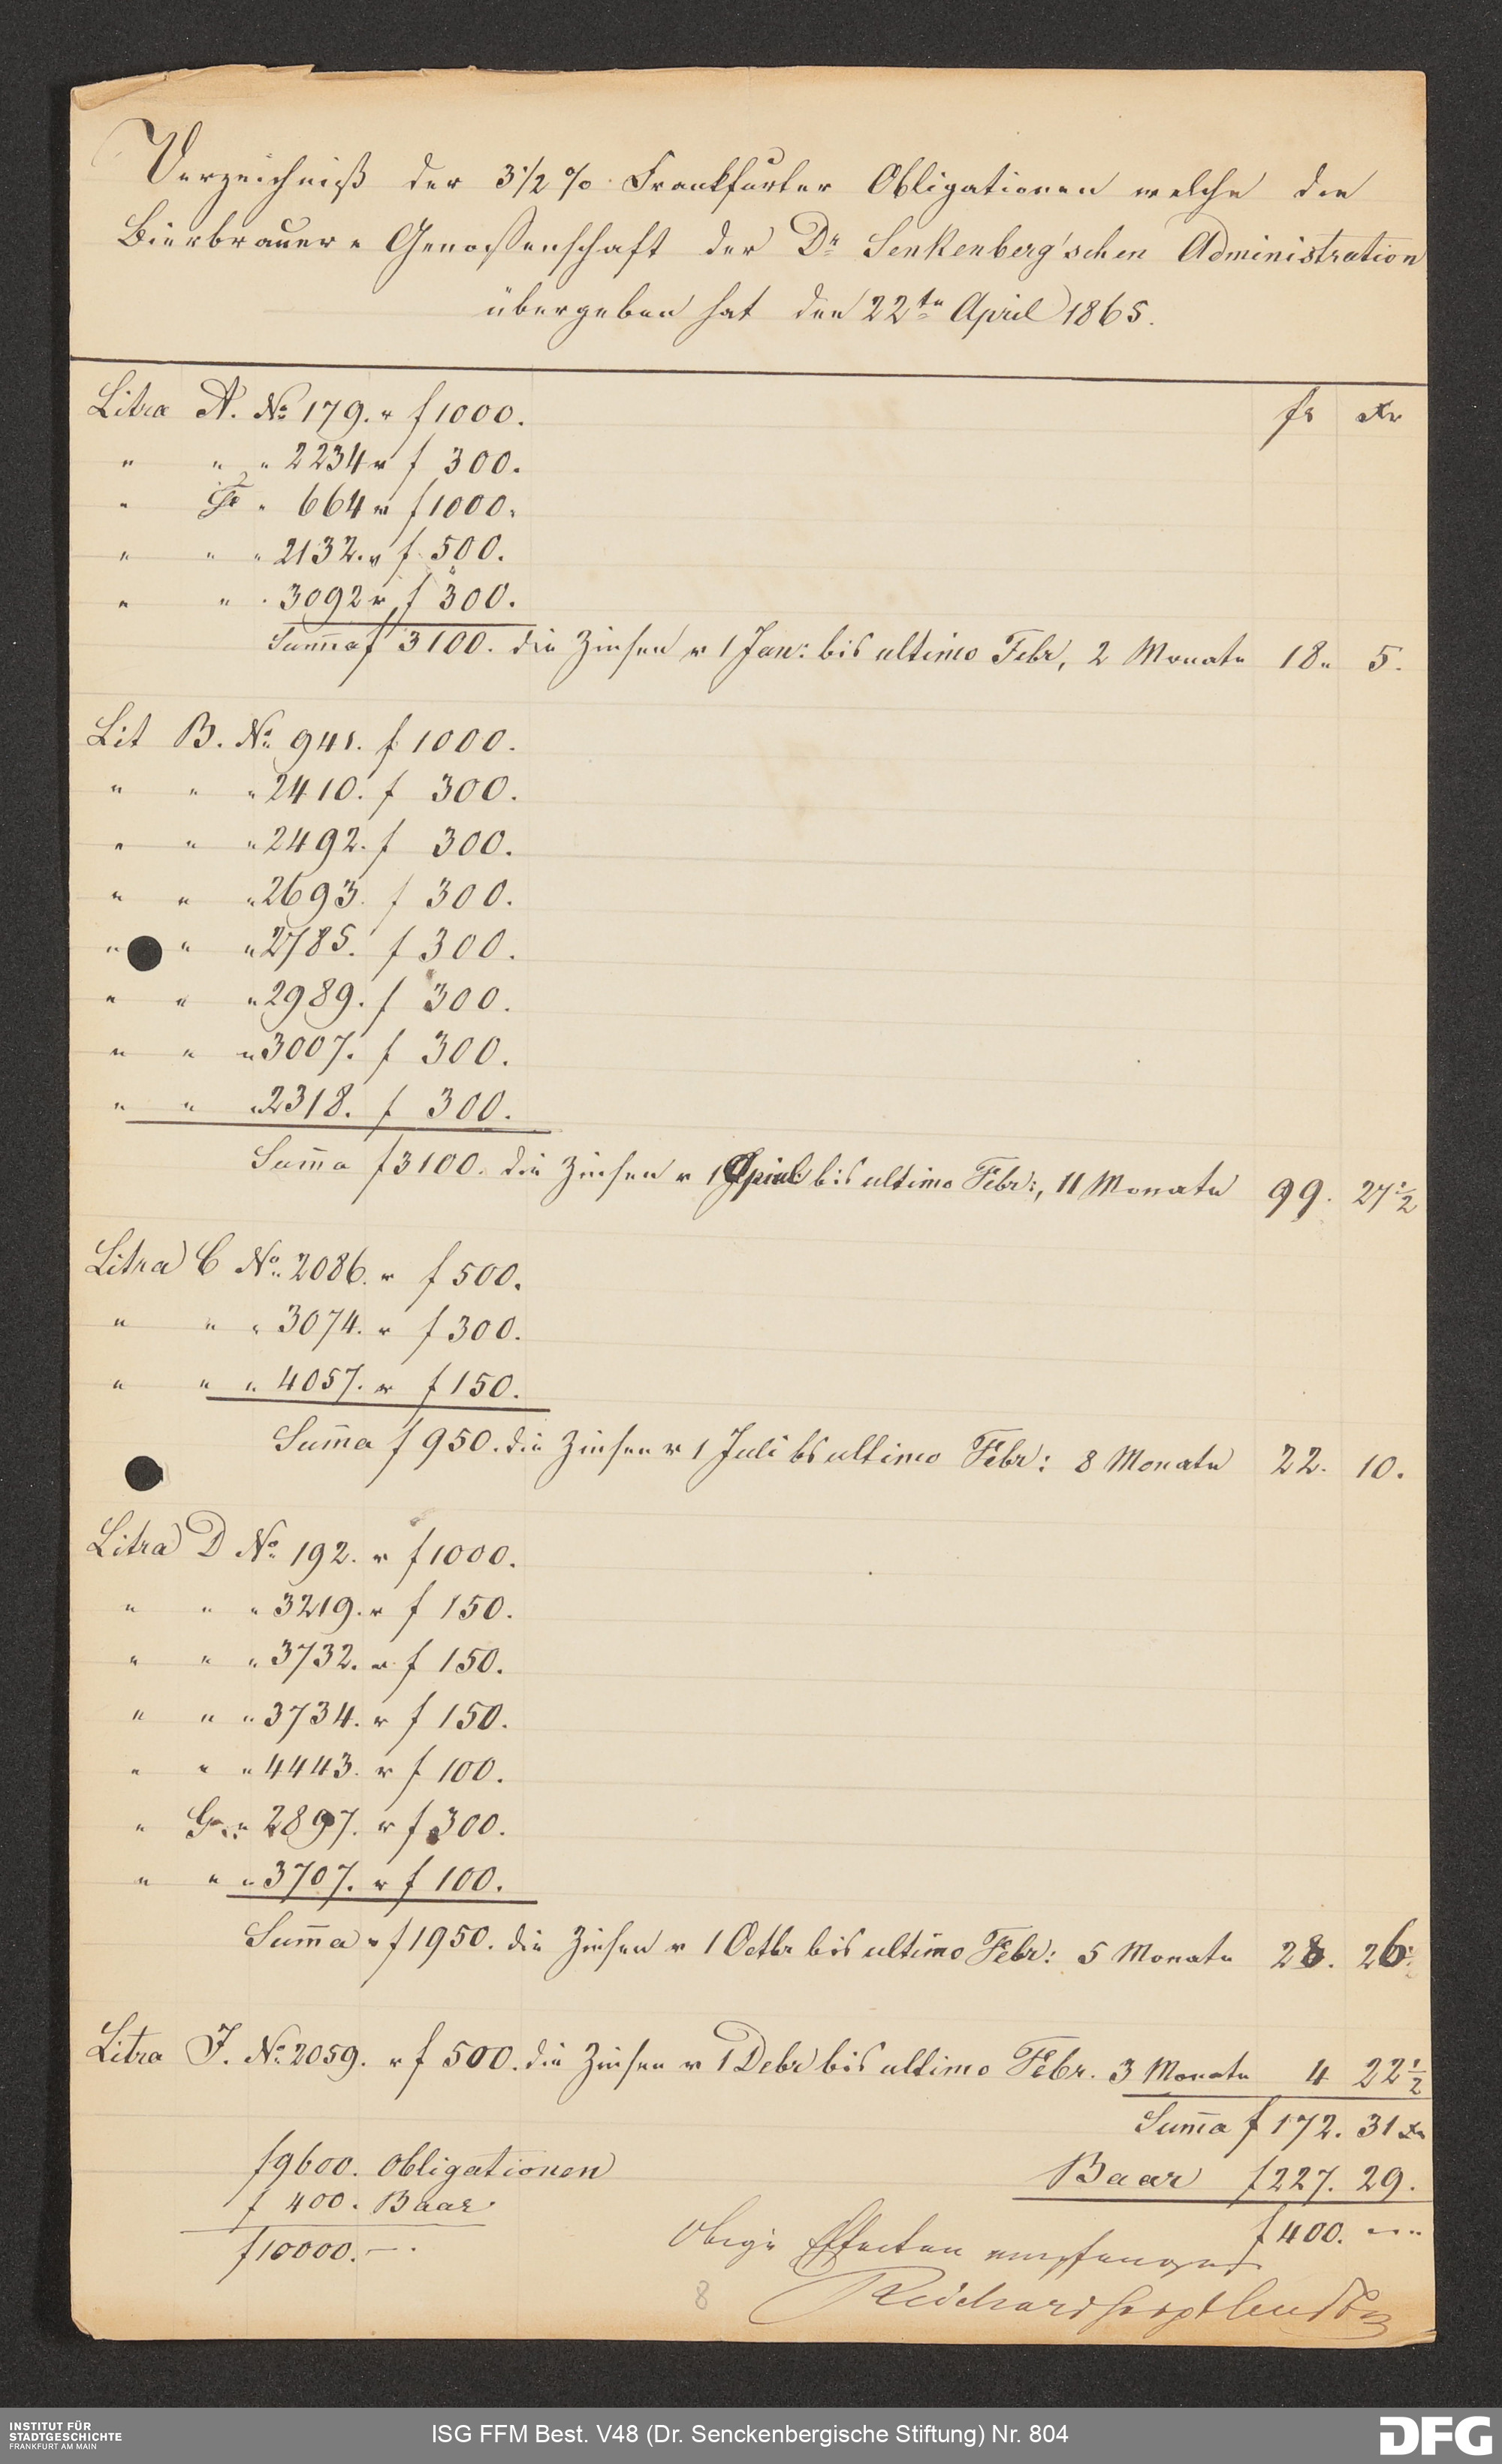 Verzeichniß der 3 1/2 % Frankfurter Obligationen welche die
Bierbrauer-Genossenschaft der Dr Senkenberg'schen Administration
übergeben hat den 22ten April 1865.
fl xr
Litra A. No 179. " f 1000.
" " " 2234 " f 300.
" F " 664 " f 1000.
" " " 2132. " f 500.
" " " 3092 " f 300.
Summa f 3100. die Zinsen v 1 Jan: bis ultimo Febr, 2 Monate 18 " 5.
Lit B. No 941. f 1000.
" " " 2410. f 300.
" " " 2492. f 300.
" " " 2693. f 300.
" " " 2785. f 300.
" " " 2989. f 300.
" " " 3007. f 300.
" " " 2318. f 300.
Summa f 3100. die Zinsen v 1 April bis ultimo Febr:, 11 Monate 99. 27 1/2
Litra C No 2086. v f 500.
" " " 3074. v f 300.
" " " 4057. v f 150.
Summa f 950. die Zinsen v 1 Juli bis ultimo Febr: 8 Monate 22. 10.
Litra D No 192. v f 1000.
" " " 3219. v f 150.
" " " 3732. v f 150.
" " " 3734. v f 150.
" " " 4443. v f 100.
" G " 2897. v f 300.
" " " 3707. v f 100.
Summa " f 1950. die Zinsen v 1 Octbr bis ultimo Febr: 5 Monate 28. 26.
Litra J. No 2059. v f 500. die Zinsen v 1 Debr bis ultimo Febr. 3 Monate 4 22 1/2
Summa f 172. 31 xr
f 9600. Obligationen
Baar f 227. 29.
f 400. Baar.
f 400. "-"
f 10000. —
Obige Effecten empfangen
8
INSTITUT FÜR
STADTGESCHICHTE
FRANKFURT AM MAIN
ISG FFM Best. V48 (Dr. Senckenbergische Stiftung) Nr. 804
DFG